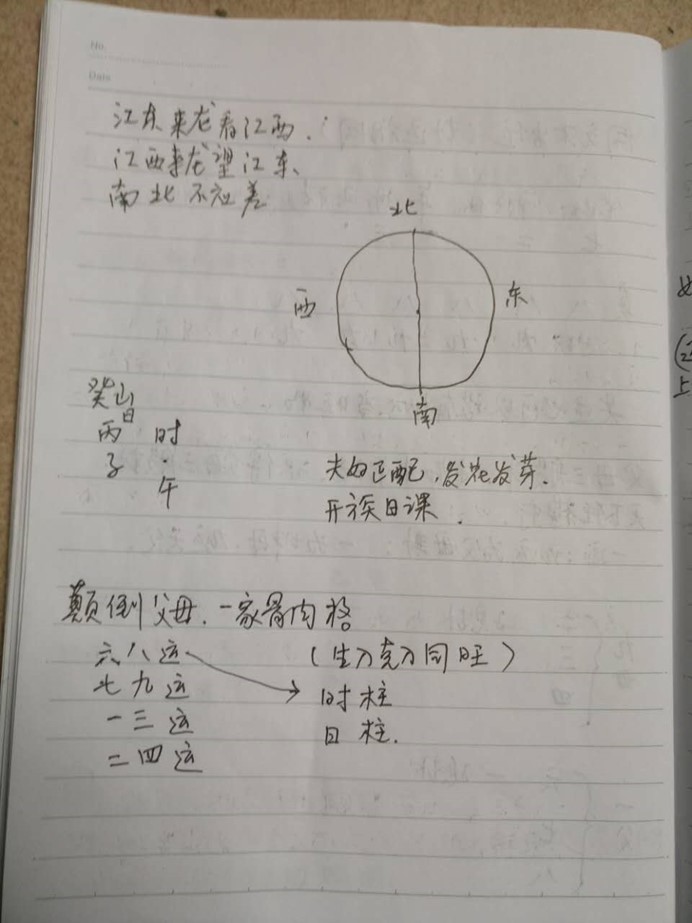 No.
Date
江东来龙看江西.
江西来龙望江东、
南北不应差
北
西
东
南
癸山
丙日 时
子 午
夫妇匹配,发花发芽.
开族日课.
颠倒父母.一家骨肉格
六八运 (生入克入同旺)
七九运 时柱
一三运 日柱.
二四运
上